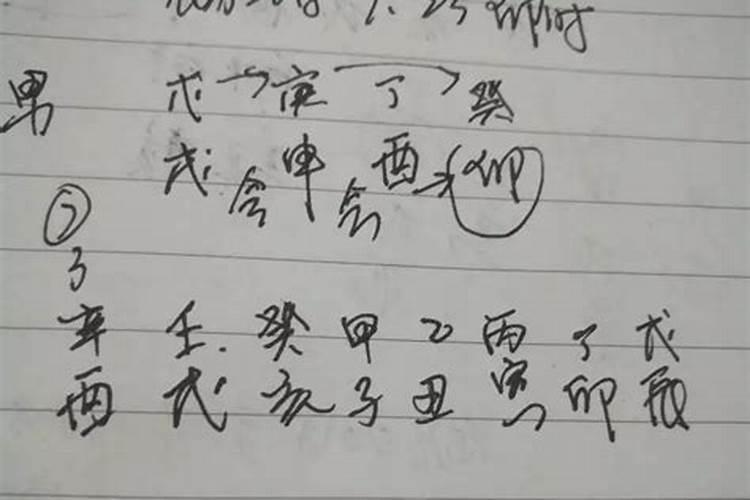 卯时
男 戊 庚 丁 癸
戌 会 申 会 酉 卯
②
了
辛 壬 癸 甲 乙 丙 丁 戊
酉 戌 亥 子 丑 寅 卯 辰